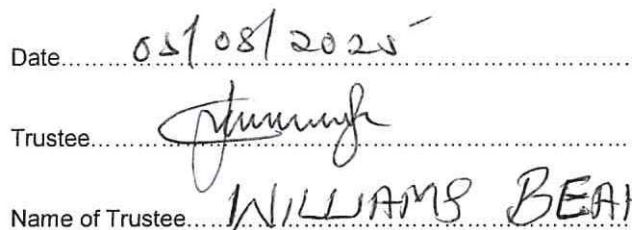 Date...... 05/08/2025
Trustee......
Name of Trustee...... WILLIAMS